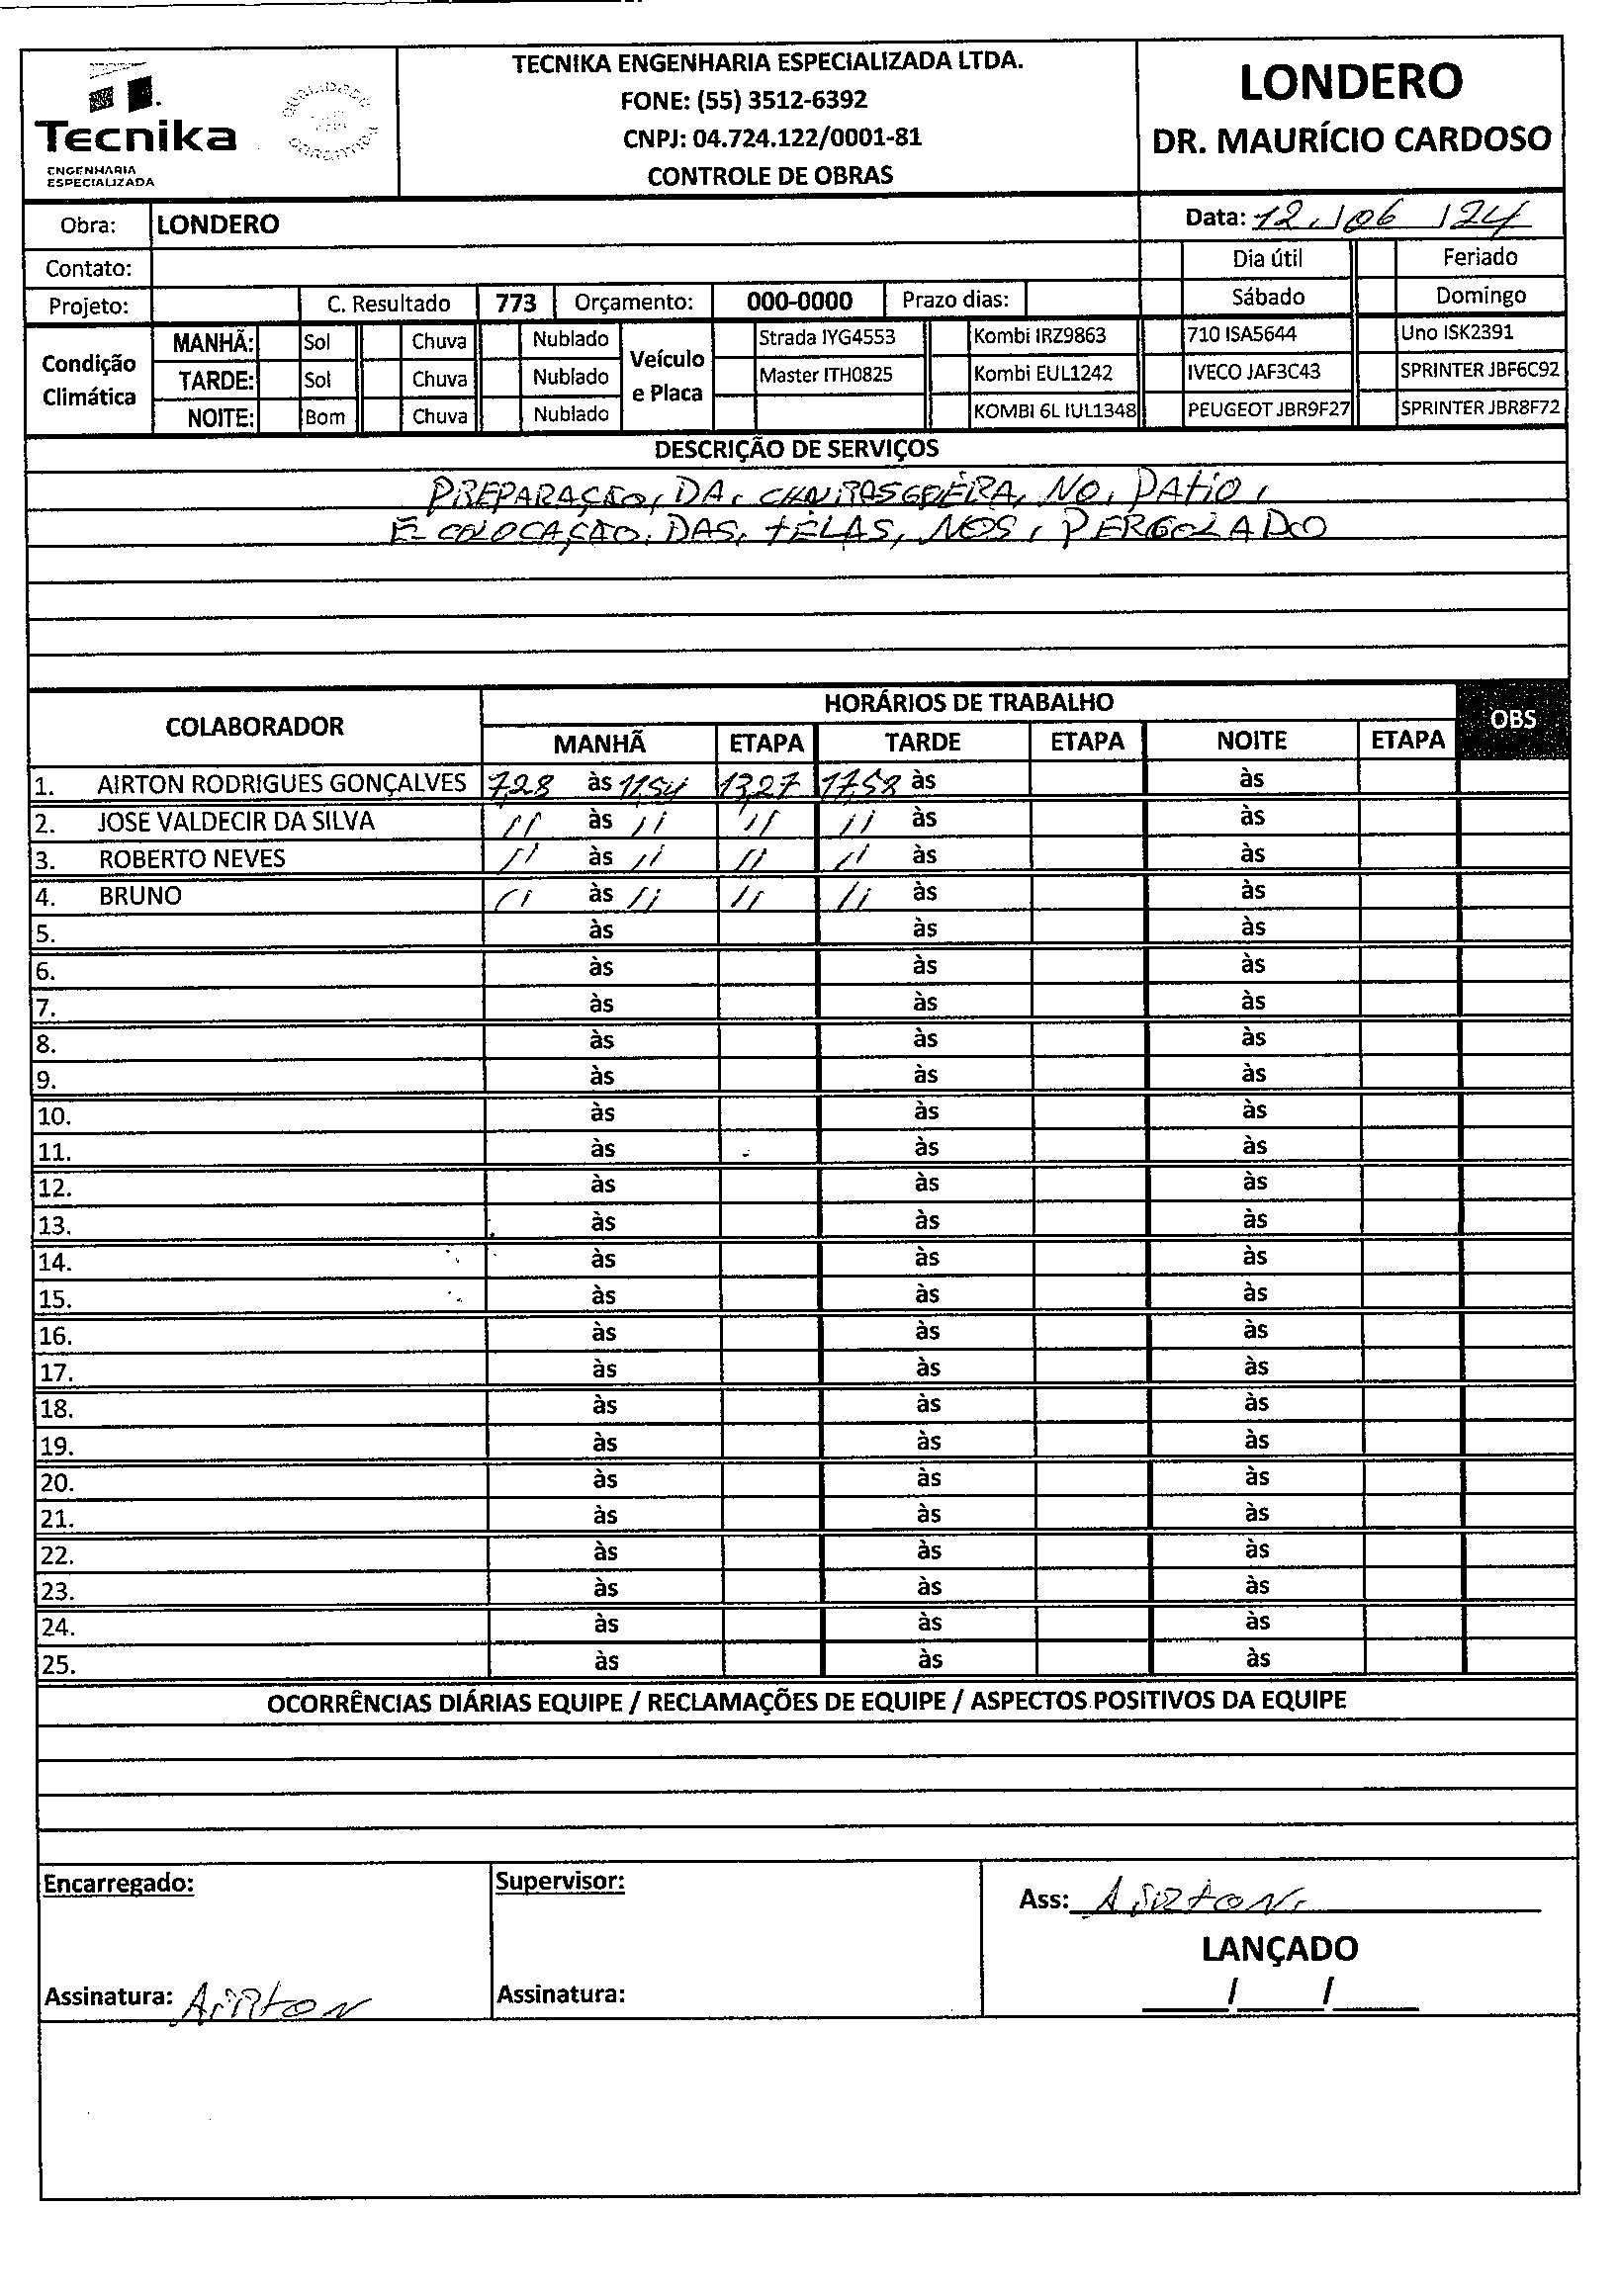 Tecnika
ENGENHARIA
ESPECIALIZADA
QUALIDADE
GARANTIDA
TECNIKA ENGENHARIA ESPECIALIZADA LTDA.
FONE: (55) 3512-6392
CNPJ: 04.724.122/0001-81
CONTROLE DE OBRAS
LONDERO
DR. MAURÍCIO CARDOSO
Obra: LONDERO Data: 12/06/24
Contato: Dia útil Feriado
Projeto: C. Resultado 773 Orçamento: 000-0000 Prazo dias: Sábado Domingo
Condição Climática
MANHÃ: Sol Chuva Nublado
TARDE: Sol Chuva Nublado
NOITE: Bom Chuva Nublado
Veículo e Placa
Strada IYG4553 Kombi IRZ9863 710 ISA5644 Uno ISK2391
Master ITH0825 Kombi EUL1242 IVECO JAF3C43 SPRINTER JBF6C92
KOMBI 6L IUL1348 PEUGEOT JBR9F27 SPRINTER JBR8F72
DESCRIÇÃO DE SERVIÇOS
PREPARAÇÃO, DA, CHURASGEÉRA, NO, PATIO,
E- COLOCAÇÃO, DAS, TELAS, NOS, PERGOLADO
COLABORADOR HORÁRIOS DE TRABALHO OBS
MANHÃ ETAPA TARDE ETAPA NOITE ETAPA
1. AIRTON RODRIGUES GONÇALVES 7,28 às 11,54 13,27 17,58 às às
2. JOSE VALDECIR DA SILVA 11 às 11 11 11 às às
3. ROBERTO NEVES 11 às 11 11 11 às às
4. BRUNO 11 às 11 11 11 às às
5. às às às
6. às às às
7. às às às
8. às às às
9. às às às
10. às às às
11. às às às
12. às às às
13. às às às
14. às às às
15. às às às
16. às às às
17. às às às
18. às às às
19. às às às
20. às às às
21. às às às
22. às às às
23. às às às
24. às às às
25. às às às
OCORRÊNCIAS DIÁRIAS EQUIPE / RECLAMAÇÕES DE EQUIPE / ASPECTOS POSITIVOS DA EQUIPE
Encarregado: Supervisor: Ass: AIRTON
LANÇADO
Assinatura: AIRTON Assinatura: ____/____/____